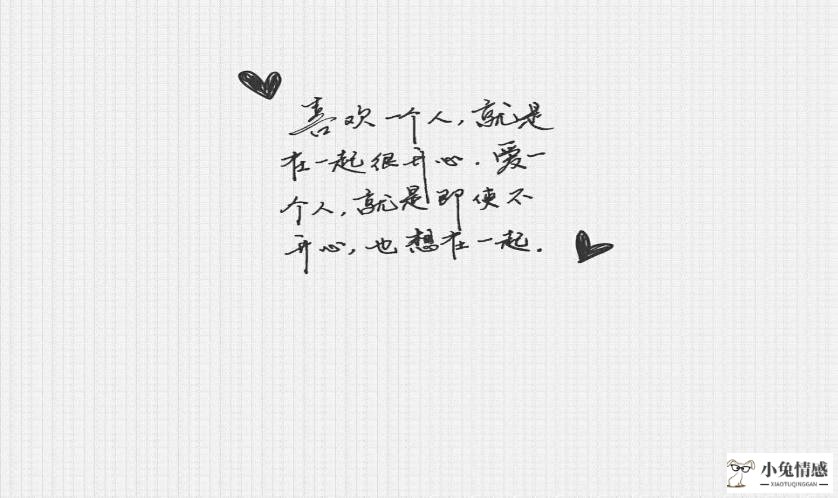 喜欢一个人，就是
在一起很开心．爱一
个人，就是即使不
开心，也想在一起．
小兔情感
XIAOTUQINGGAN